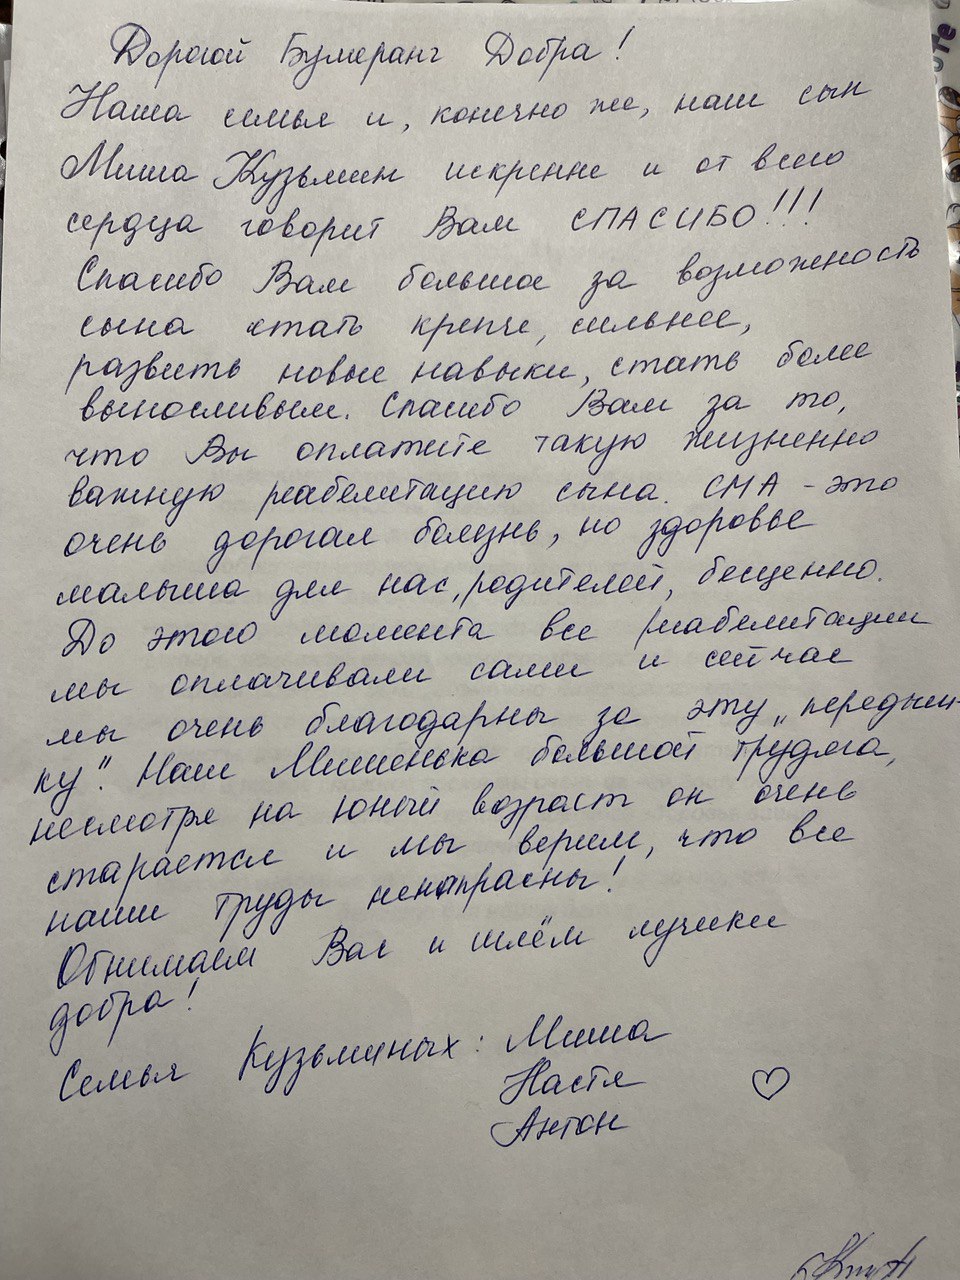 Дорогой Бумеранг Добра!
Наша семья и, конечно же, наш сын
Миша Кузьмин искренне и от всего
сердца говорит Вам СПАСИБО!!!
Спасибо Вам большое за возможность
сына стать крепче, сильнее,
развить новые навыки, стать более
выносливым. Спасибо Вам за то,
что Вы оплатите такую жизненно
важную реабелитацию сына. СМА - это
очень дорогая болезнь, но здоровье
малыша для нас, родителей, бесценно.
До этого момента все реабелитации
мы оплачивали сами и сейчас
мы очень благодарны за эту „передыш-
ку". Наш Мишенька большой трудяга,
несмотря на юный возраст он очень
старается и мы верим, что все
наши труды ненапрасны!
Обнимаем Вас и шлём лучики
добра!
Семья Кузьминых: Миша
Настя
Антон